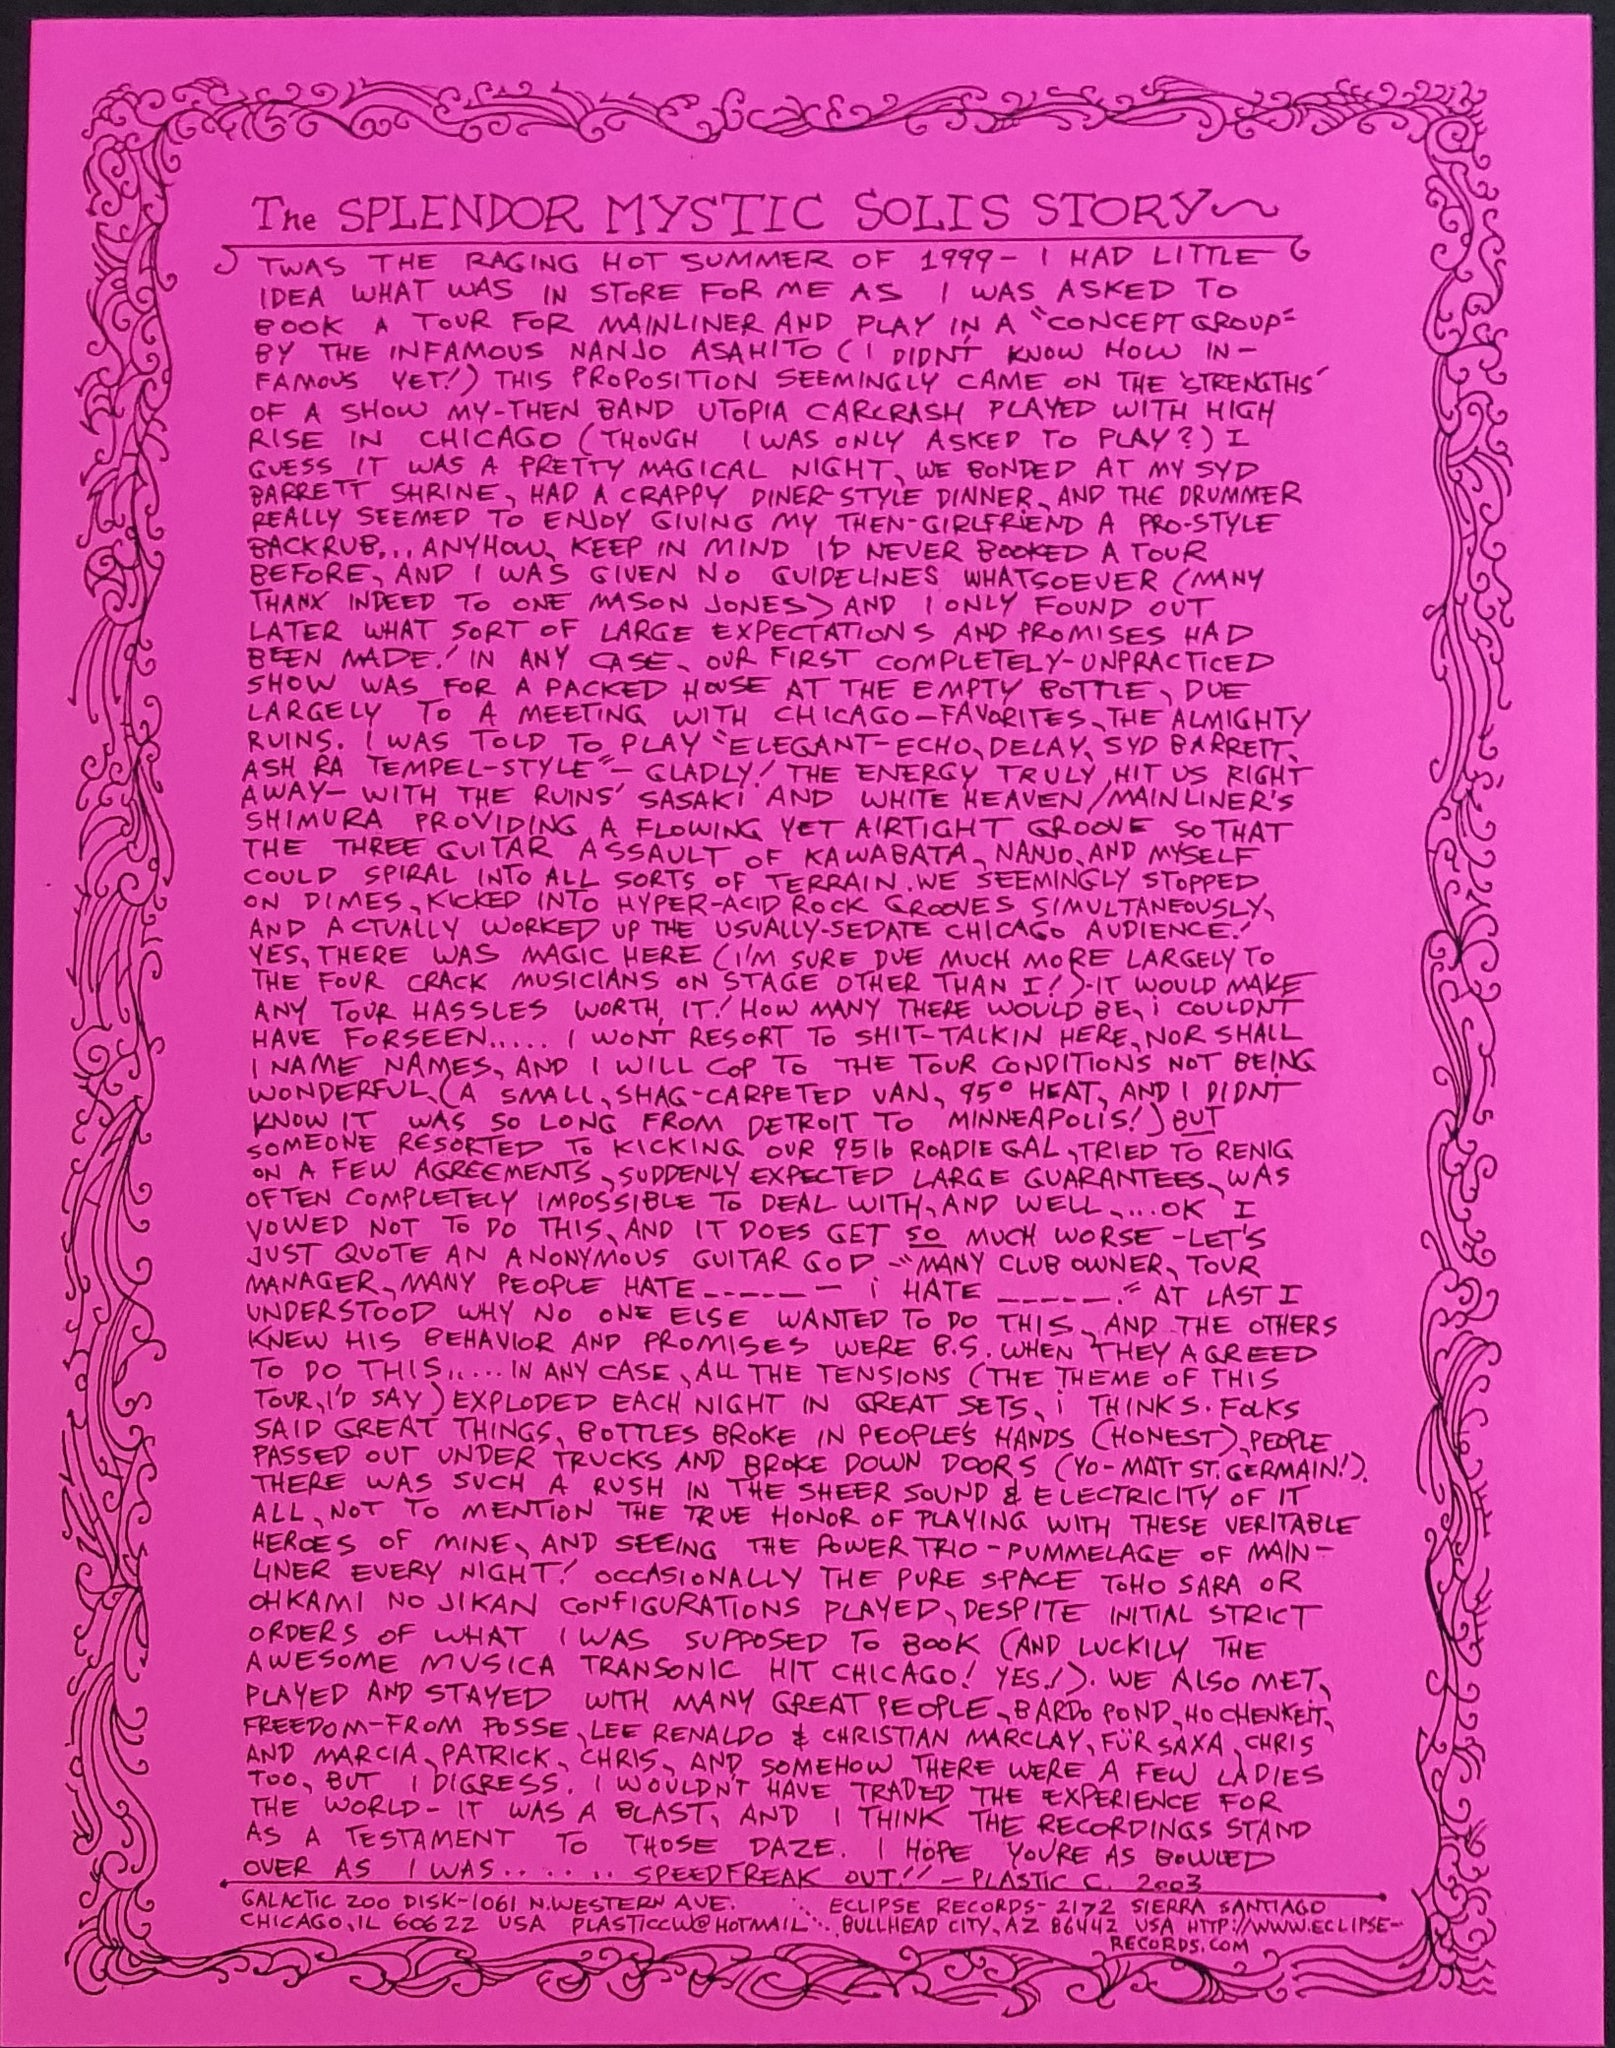 The SPLENDOR MYSTIC SOLIS STORY~
TWAS THE RAGING HOT SUMMER OF 1999- I HAD LITTLE
IDEA WHAT WAS IN STORE FOR ME AS I WAS ASKED TO
BOOK A TOUR FOR MAINLINER AND PLAY IN A "CONCEPT GROUP"
BY THE INFAMOUS NANJO ASAHITO (I DIDN'T KNOW HOW IN-
FAMOUS YET!) THIS PROPOSITION SEEMINGLY CAME ON THE 'STRENGTHS'
OF A SHOW MY-THEN BAND UTOPIA CARCRASH PLAYED WITH HIGH
RISE IN CHICAGO (THOUGH I WAS ONLY ASKED TO PLAY?) I
GUESS IT WAS A PRETTY MAGICAL NIGHT, WE BONDED AT MY SYD
BARRETT SHRINE, HAD A CRAPPY DINER-STYLE DINNER, AND THE DRUMMER
REALLY SEEMED TO ENJOY GIVING MY THEN-GIRLFRIEND A PRO-STYLE
BACKRUB... ANYHOW, KEEP IN MIND I'D NEVER BOOKED A TOUR
BEFORE, AND I WAS GIVEN NO GUIDELINES WHATSOEVER (MANY
THANX INDEED TO ONE MASON JONES) AND I ONLY FOUND OUT
LATER WHAT SORT OF LARGE EXPECTATIONS AND PROMISES HAD
BEEN MADE! IN ANY CASE, OUR FIRST COMPLETELY-UNPRACTICED
SHOW WAS FOR A PACKED HOUSE AT THE EMPTY BOTTLE, DUE
LARGELY TO A MEETING WITH CHICAGO-FAVORITES, THE ALMIGHTY
RUINS. I WAS TOLD TO PLAY "ELEGANT-ECHO, DELAY, SYD BARRETT,
ASH RA TEMPEL-STYLE"- GLADLY! THE ENERGY TRULY HIT US RIGHT
AWAY- WITH THE RUINS' SASAKI AND WHITE HEAVEN/MAINLINER'S
SHIMURA PROVIDING A FLOWING YET AIRTIGHT GROOVE SO THAT
THE THREE GUITAR ASSAULT OF KAWABATA, NANJO, AND MYSELF
COULD SPIRAL INTO ALL SORTS OF TERRAIN. WE SEEMINGLY STOPPED
ON DIMES, KICKED INTO HYPER-ACID ROCK GROOVES SIMULTANEOUSLY,
AND ACTUALLY WORKED UP THE USUALLY-SEDATE CHICAGO AUDIENCE!
YES, THERE WAS MAGIC HERE (I'M SURE DUE MUCH MORE LARGELY TO
THE FOUR CRACK MUSICIANS ON STAGE OTHER THAN I!)-IT WOULD MAKE
ANY TOUR HASSLES WORTH IT! HOW MANY THERE WOULD BE, I COULDN'T
HAVE FORSEEN..... I WONT RESORT TO SHIT-TALKIN HERE, NOR SHALL
I NAME NAMES, AND I WILL COP TO THE TOUR CONDITIONS NOT BEING
WONDERFUL (A SMALL, SHAG-CARPETED VAN, 95° HEAT, AND I DIDN'T
KNOW IT WAS SO LONG FROM DETROIT TO MINNEAPOLIS!) BUT
SOMEONE RESORTED TO KICKING OUR 95lb ROADIE GAL, TRIED TO RENIG
ON A FEW AGREEMENTS, SUDDENLY EXPECTED LARGE GUARANTEES, WAS
OFTEN COMPLETELY IMPOSSIBLE TO DEAL WITH, AND WELL,... OK I
VOWED NOT TO DO THIS, AND IT DOES GET SO MUCH WORSE -LET'S
JUST QUOTE AN ANONYMOUS GUITAR GOD -"MANY CLUB OWNER, TOUR
MANAGER, MANY PEOPLE HATE------ - I HATE ------." AT LAST I
UNDERSTOOD WHY NO ONE ELSE WANTED TO DO THIS, AND THE OTHERS
KNEW HIS BEHAVIOR AND PROMISES WERE B.S. WHEN THEY AGREED
TO DO THIS..... IN ANY CASE, ALL THE TENSIONS (THE THEME OF THIS
TOUR, I'D SAY) EXPLODED EACH NIGHT IN GREAT SETS, I THINKS. FOLKS
SAID GREAT THINGS, BOTTLES BROKE IN PEOPLE'S HANDS (HONEST), PEOPLE
PASSED OUT UNDER TRUCKS AND BROKE DOWN DOORS (YO-MATT ST. GERMAIN!).
THERE WAS SUCH A RUSH IN THE SHEER SOUND & ELECTRICITY OF IT
ALL, NOT TO MENTION THE TRUE HONOR OF PLAYING WITH THESE VERITABLE
HEROES OF MINE, AND SEEING THE POWER TRIO-PUMMELAGE OF MAIN-
LINER EVERY NIGHT! OCCASIONALLY THE PURE SPACE TOHO SARA OR
OHKAMI NO JIKAN CONFIGURATIONS PLAYED, DESPITE INITIAL STRICT
ORDERS OF WHAT I WAS SUPPOSED TO BOOK (AND LUCKILY THE
AWESOME MUSICA TRANSONIC HIT CHICAGO! YES!). WE ALSO MET,
PLAYED AND STAYED WITH MANY GREAT PEOPLE, BARDO POND, HOCHENKEIT,
FREEDOM-FROM POSSE, LEE RENALDO & CHRISTIAN MARCLAY, FÜR SAXA, CHRIS
AND MARCIA, PATRICK, CHRIS, AND SOMEHOW THERE WERE A FEW LADIES
TOO, BUT I DIGRESS. I WOULDN'T HAVE TRADED THE EXPERIENCE FOR
THE WORLD- IT WAS A BLAST, AND I THINK THE RECORDINGS STAND
AS A TESTAMENT TO THOSE DAZE. I HOPE YOU'RE AS BOWLED
OVER AS I WAS....... SPEEDFREAK OUT!! -PLASTIC C. 2003
GALACTIC ZOO DISK-1061 N.WESTERN AVE. ECLIPSE RECORDS- 2172 SIERRA SANTIAGO
CHICAGO, IL 60622 USA PLASTICCW@HOTMAIL BULLHEAD CITY, AZ 86442 USA HTTP://WWW.ECLIPSE-
RECORDS.COM